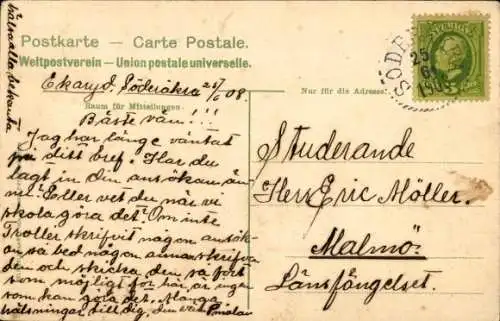 hälsa alla bekanta
Postkarte — Carte Postale.
Weltpostverein — Union postale universelle.
Ekaryd. Söderåkra 25/6 08.
Raum für Mitteilungen.
Nur für die Adresse.
Bäste vän!!!
Jag har länge väntat
på ditt bref. Har du
lagt in din ansökan än-
nu? Eller vet du när vi
skola göra det? Om inte
Troller skrifvit någon ansök-
an så bed någon annan skrifva
den och skicka den så fort
som möjligt för här är ingen
som kan göra det. Många
hälsningar till dig, din vän
SVERIGE
5
SÖDE
25
6
190
Studerande
Herr Eric Möller.
Malmö.
Länsfängelset.